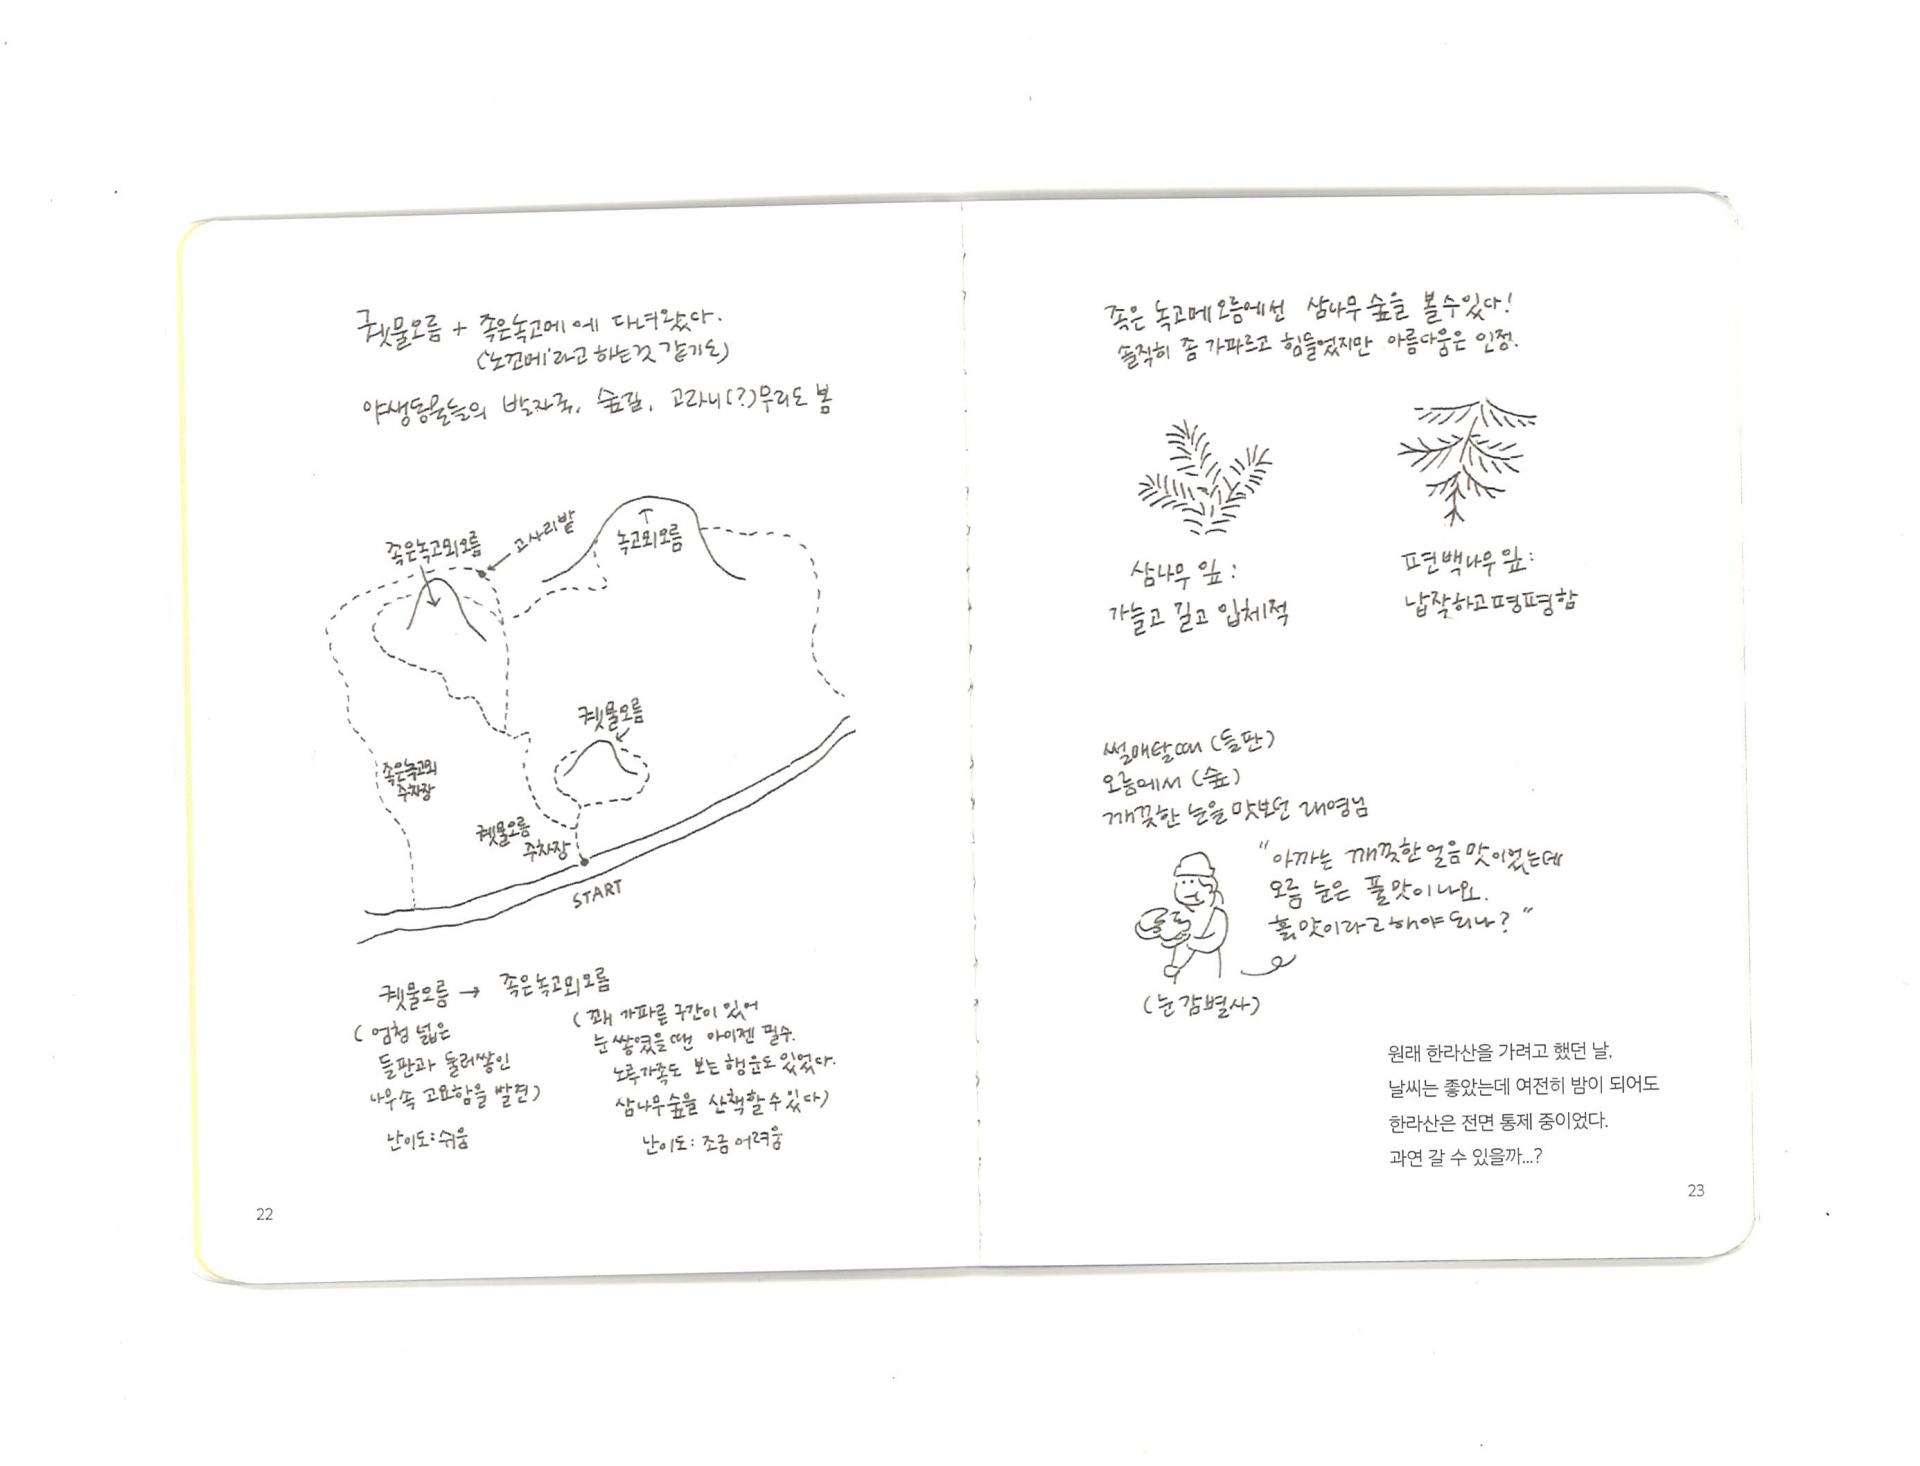 궷물오름 + 족은녹고메에 다녀왔다.
('노꼬메'라고 하는것 같기도)
야생동물들의 발자국, 숲길, 고라니(?)무리도 봄
족은녹고뫼오름
고사리밭
녹고뫼오름
궷물오름
족은녹고뫼
주차장
궷물오름
주차장
START
궷물오름 → 족은녹고뫼오름
( 엄청 넓은
들판과 둘러쌓인
나무속 고요함을 발견)
난이도: 쉬움
( 꽤 가파른 구간이 있어
눈쌓였을땐 아이젠 필수.
노루가족도 보는 행운도 있었다.
삼나무숲을 산책할수있다)
난이도: 조금 어려움
22
족은 녹고메오름에선 삼나무숲을 볼수있다!
솔직히 좀 가파르고 힘들었지만 아름다움은 인정.
삼나무 잎:
가늘고 길고 입체적
편백나무 잎:
납작하고 평평함
썰매탈때 (들판)
오름에서 (숲)
깨끗한 눈을 맛보던 래영님
"아까는 깨끗한 얼음맛이었는데
오름 눈은 풀맛이나요.
흙맛이라고 해야되나?"
(눈감별사)
원래 한라산을 가려고 했던 날,
날씨는 좋았는데 여전히 밤이 되어도
한라산은 전면 통제 중이었다.
과연 갈 수 있을까...?
23